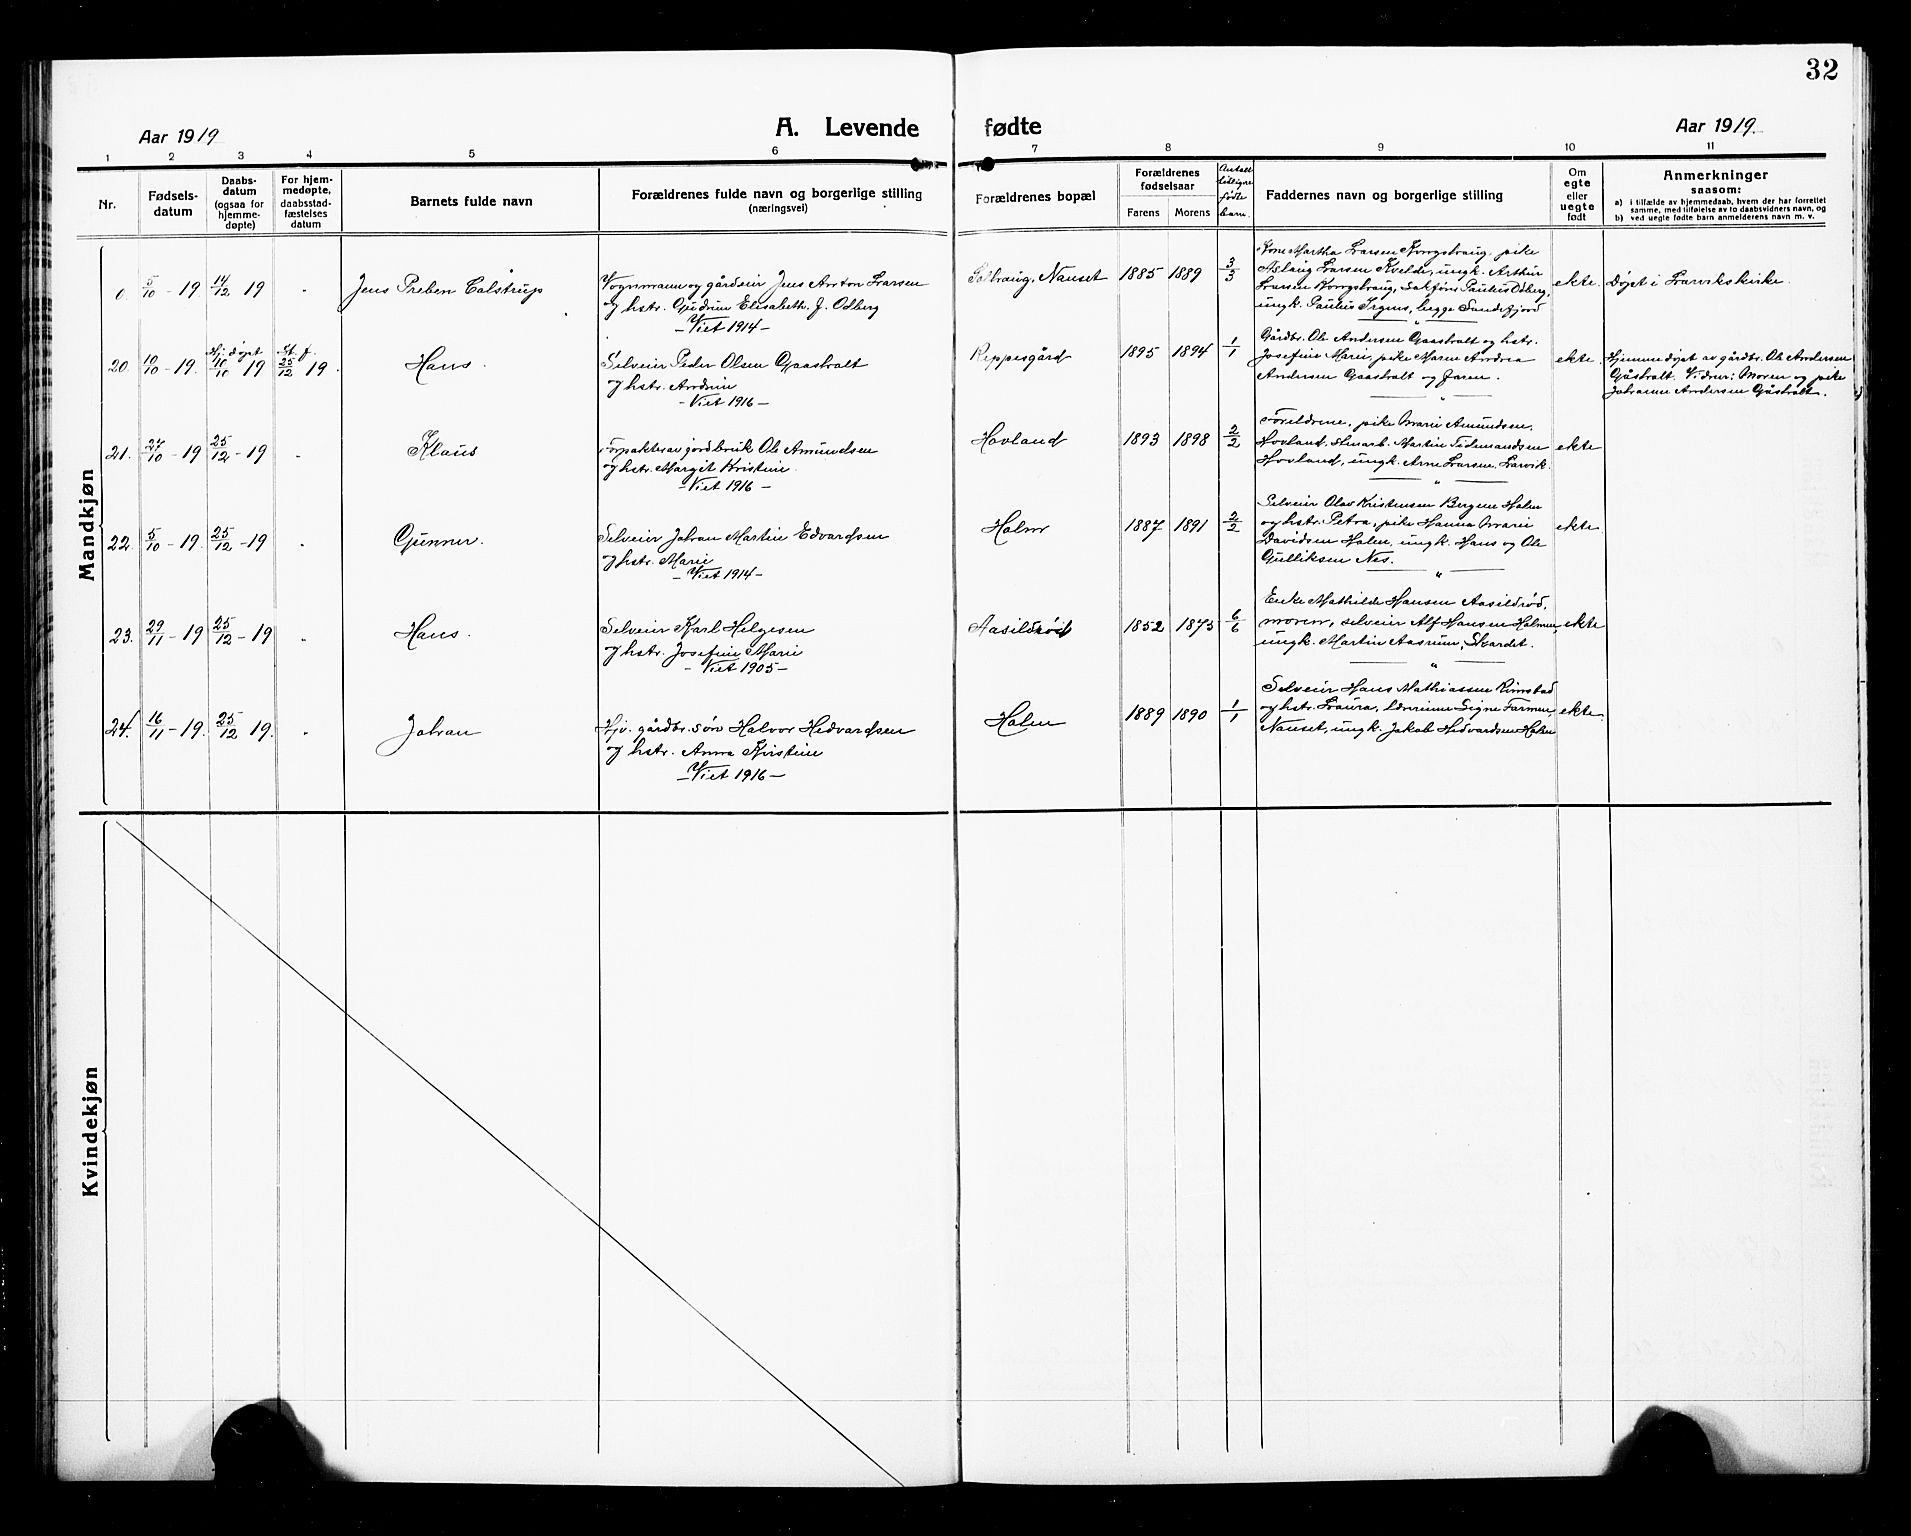 32
Aar 1919
A. Levende fødte
Aar 1919.
1 2 3 4 5 6 7 8 9 10 11
Nr.
Fødsels-
datum
Daabs-
datum
(ogsaa for
hjemme-
døpte)
For hjem-
medøpte,
daabsstad-
fæstelses
datum
Barnets fulde navn
Forældrenes fulde navn og borgerlige stilling
(næringsvei)
Forældrenes bopæl
Forældrenes
fødselsaar
Farens Morens
Antall
tidligere
fødte
barn.
Faddernes navn og borgerlige stilling
Om
egte
eller
uegte
født
Anmerkninger
saasom:
a) i tilfælde av hjemmedaab, hvem der har forrettet
samme, med tilføielse av to daabsvidners navn, og
b) ved uegte fødte barn anmelderens navn m. v.
Mandkjøn
0. 5/10 - 19. 14/12 19 Jens Preben Colstrup
Vognmann og gårdeier Jens Anton Larsen
og hstr. Gudrun Elisabeth J. Odberg
- Viet 1914 -
Solhaug, Nanset 1885 1889 3/3
Kone Martha Larsen Kongshaug, pike
Aslaug Larsen Kvelde, ungk. Arthur
Larsen Kongshaug, Sakfører Paulus Odberg,
ungk. Paulus Irgens, begge Sandefjord
ekte. Døpt i Larvikskirke.
20. 10/10 - 19. Hj. døpt 10/10 19 St. f. 25/12 19. Hans.
Selveier Peder Olsen Gaasholt
og hstr. Andrine
- Viet 1916 -
Reppesgård 1895 1894 1/1
Gårdbr. Ole Andersen Gaasholt og hstr.
Josefine Marie, pike Maren Andrea
Andersen Gaasholt og Faren.
ekte. Hjemmedøpt av gårdbr. Ole Andersen
Gåsholt. Vidner: Moren og pike
Johanne Andersen Gåsholt.
21. 27/10 - 19 25/12 - 19 Klaus
Forpakter av jordbruk Ole Amundsen
og hstr. Margit Kristine.
- Viet 1916 -
Hovland 1893 1898 2/2
Foreldrene, pike Marie Amundsen,
Hovland, Martin Tidemandsen
Hovland, ungk. Arne Larsen, Larvik.
ekte
22. 5/10 - 19. 25/12 - 19 Gunner.
Selveier Johan Martin Edvardsen
og hstr. Marie
- Viet 1914 -
Holm 1887 1891 2/2
Selveier Olav Kristensen Bergene Holm
og hstr. Petra, pike Hanna Marie
Davidsen Holm, ungk. Hans og Ole
Gulliksen Nes.
ekte.
23. 29/11 - 19 25/12 - 19 Hans.
Selveier Karl Helgesen
og hstr. Josefine Marie
- Viet 1905 -
Aasildrød 1852 1873 6/6
Enke Mathilde Hansen Aasildrød,
moren, selveier Alf Hansen Holmen,
ungk. Martin Aasrum, Skardet.
ekte
24. 16/11 - 19. 25/12 19. Johan
Hjv. gårdbr. søn Halvor Hedvardsen
og hstr. Anna Kirstine
- Viet 1916 -
Holm 1889 1890 1/1
Selveier Hans Mathiassen Rimstad
og hstr. Laura, lærerinne Signe Farmen,
Nanset, ungk. Jakob Hedvardsen Holm
ekte.
Kvindekjøn